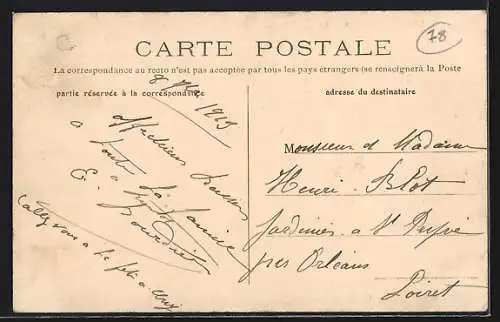 C
78
CARTE POSTALE
La correspondance au recto n'est pas acceptée par tous les pays étrangers (se renseigner à la Poste
partie réservée à la correspondance
adresse du destinataire
8 1913
affectueux baisers
a toute la famille
E.
allez vous a la fête a
Monsieur et Madame
Henri Blot
Jardinier a St Privé
pres Orléans
Loiret